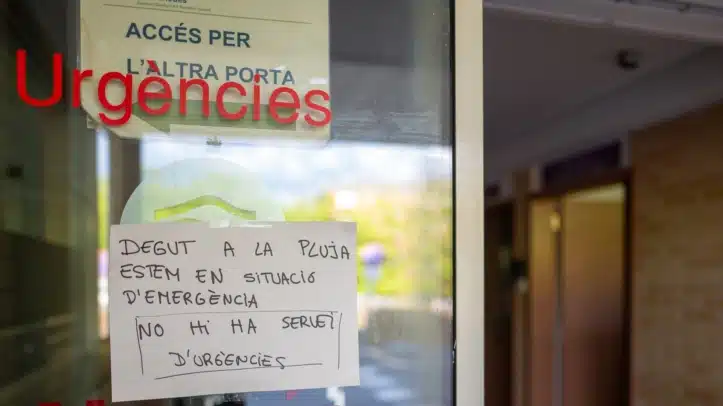 ACCÉS PER
L'ALTRA PORTA
Urgències
DEGUT A LA PLUJA
ESTEM EN SITUACIÓ
D'EMERGÈNCIA
NO HI HA SERVEI
D'URGÈNCIES